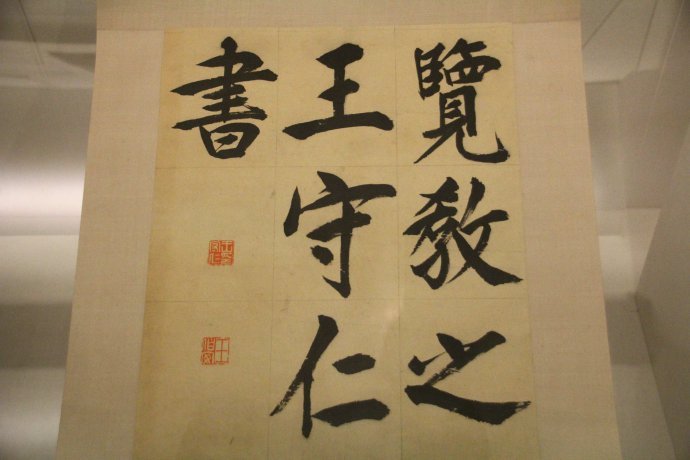 覽教之
王守仁
書